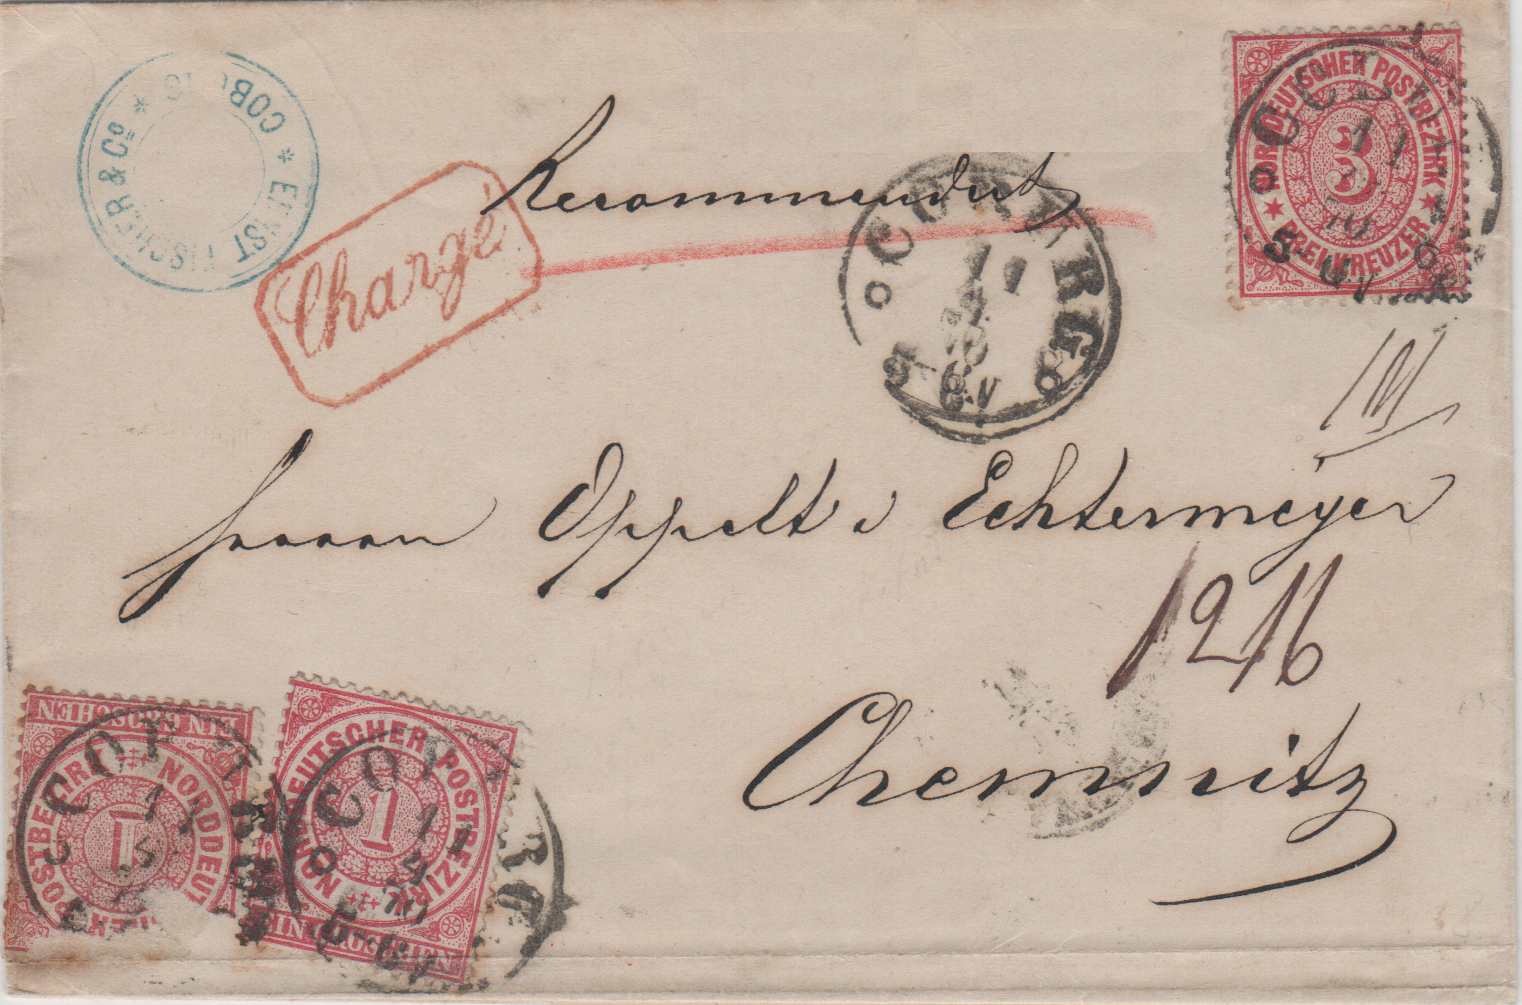 ERNST FISCHER & Co * COBURG *
Recommandirt
Chargé
COBURG
11
NORDDEUTSCHER POSTBEZIRK
3
DREI KREUZER
Herren Oppelt & Echtermeyer
1216
Chemnitz
NORDDEUTSCHER POSTBEZIRK
1
EIN GROSCHEN
COBURG
NORDDEUTSCHER POSTBEZIRK
1
EIN GROSCHEN
COBURG
11